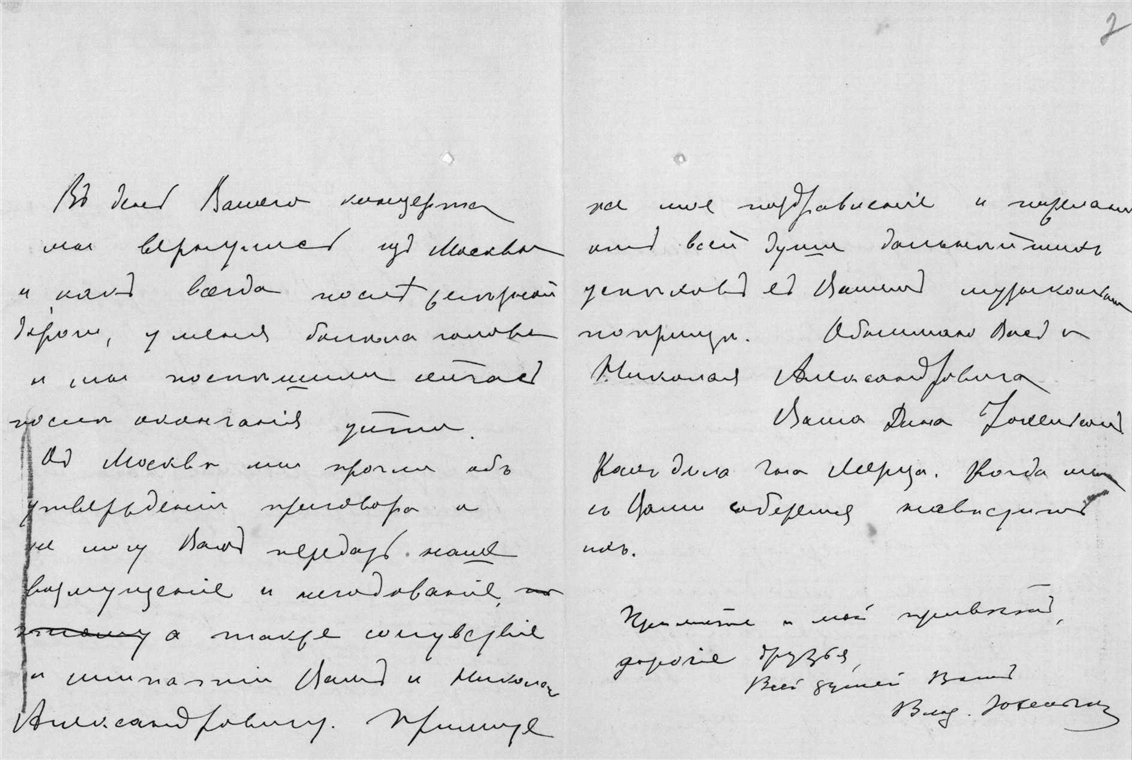 2
Въ день Вашего концерта
мы вернулись изъ Москвы
и какъ всегда послѣ желѣзной
дороги, у меня болѣла голова
и мы поспѣшили сейчасъ
послѣ окончанія уѣхать.
Въ Москвѣ мы прочли объ
утвержденіи приговора и
не могу Вамъ передать наше
возмущеніе и негодованіе, но
а также сочувствіе
и симпатіи Вамъ и Николаю
Александровичу. Примите
же мое поздравленіе и пожеланія
отъ всей души дальнѣйшихъ
успѣховъ въ Вашемъ музыкальномъ
поприщѣ. Обнимаю Васъ и
Николая Александровича
Ваша Дина
Марца. Когда мы
съ Вами соберемся навѣстить
ихъ.
Примите и мой привѣтъ,
дорогіе друзья,
Всей душой Вашъ
Влад.